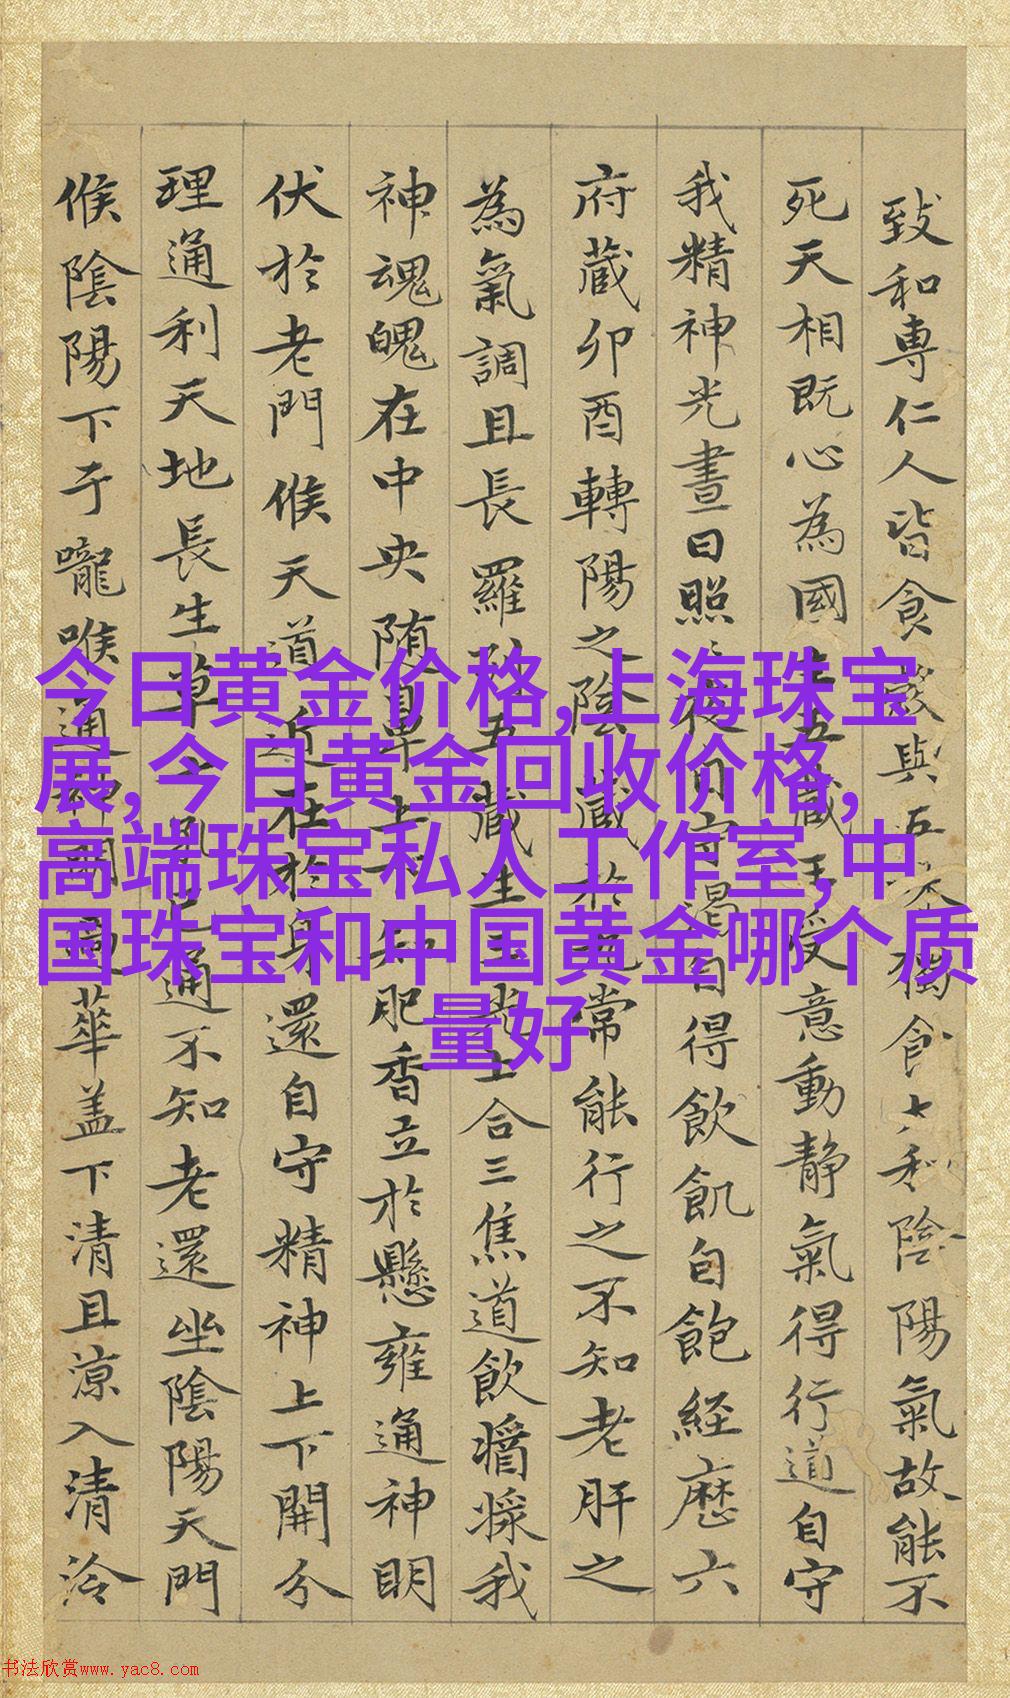 今日黄金价格,上海珠宝
展,今日黄金回收价格,
高端珠宝私人工作室,中
国珠宝和中国黄金哪个质
量好
致和専仁人皆食穀與五味獨食太和陰陽氣故能不
死天相既心為國主五藏王受意動静氣得行道自守
我精神光晝日照々夜自守渴自得飲飢自飽經歴六
府藏卯酉轉陽之陰藏於九常能行之不知老肝之
為氣調且長羅列五藏生三光上合三焦道飲醬漿我
神魂魄在中央随鼻上下知肥香立於懸雍通神明
伏於老門候天道近在於身還自守精神上下開分
理通利天地長生草七孔已通不知老還坐陰陽天門
候陰陽下于嚨喉通神明過華盖下清且涼入清泠
书法欣赏www.yac8.com